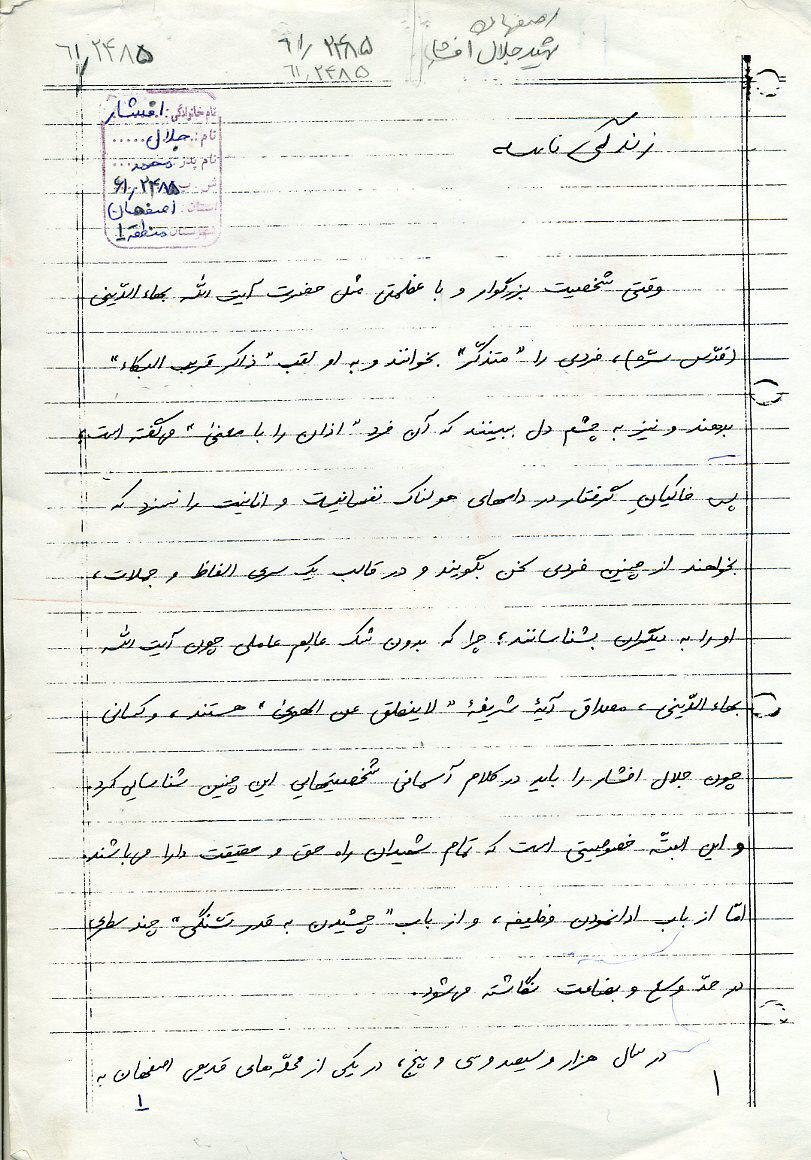 اصفهان
شهید جلال افشار
۶۱/۲۴۸۵
۶۱/۲۴۸۵
۶۱/۲۴۸۵
نام خانوادگی: افشار
نام: جلال
نام پدر: محمد
ش پ ۶۱/۲۴۸۵
استان: اصفهان
شهرستان منطقه ۱
زندگی نامه
وقتی شخصیت بزرگوار و با عظمتی مثل حضرت آیت الله بهاء الدّینی
(قدّس سرّه)، فردی را "متذکّر" بخوانند و به او لقب "ذاکر قریب البکاء"
بدهند و نیز به چشم دل ببینند که آن فرد "اذان را با معنی" می‌گفته است؛
پس خاکیانِ گرفتار در دامهای هولناک نفسانیت و انانیت را نسزد که
بخواهند از چنین فردی سخن بگویند و در قالب یک سری الفاظ و جملات،
او را به دیگران بشناسانند؛ چرا که بدون شک عالِم عاملی چون آیت الله
بهاء الدّینی، مصداق آیهٔ شریفهٔ "لا ینطق عن الهوی" هستند، و کسانی
چون جلال افشار را باید در کلام آسمانی شخصیتهایی این چنین شناسایی کرد.
و این البتّه خصوصیتی است که تمام شهیدان راه حق و حقیقت دارا می‌باشند.
امّا از باب ادا نمودن وظیفه، و از باب "چشیدن به قدر تشنگی" چند سطری
در حدّ وسع و بضاعت نگاشته می‌شود.
در سال هزار و سیصد و سی و پنج، در یکی از محلّه‌های قدیمی اصفهان به
۱
۱